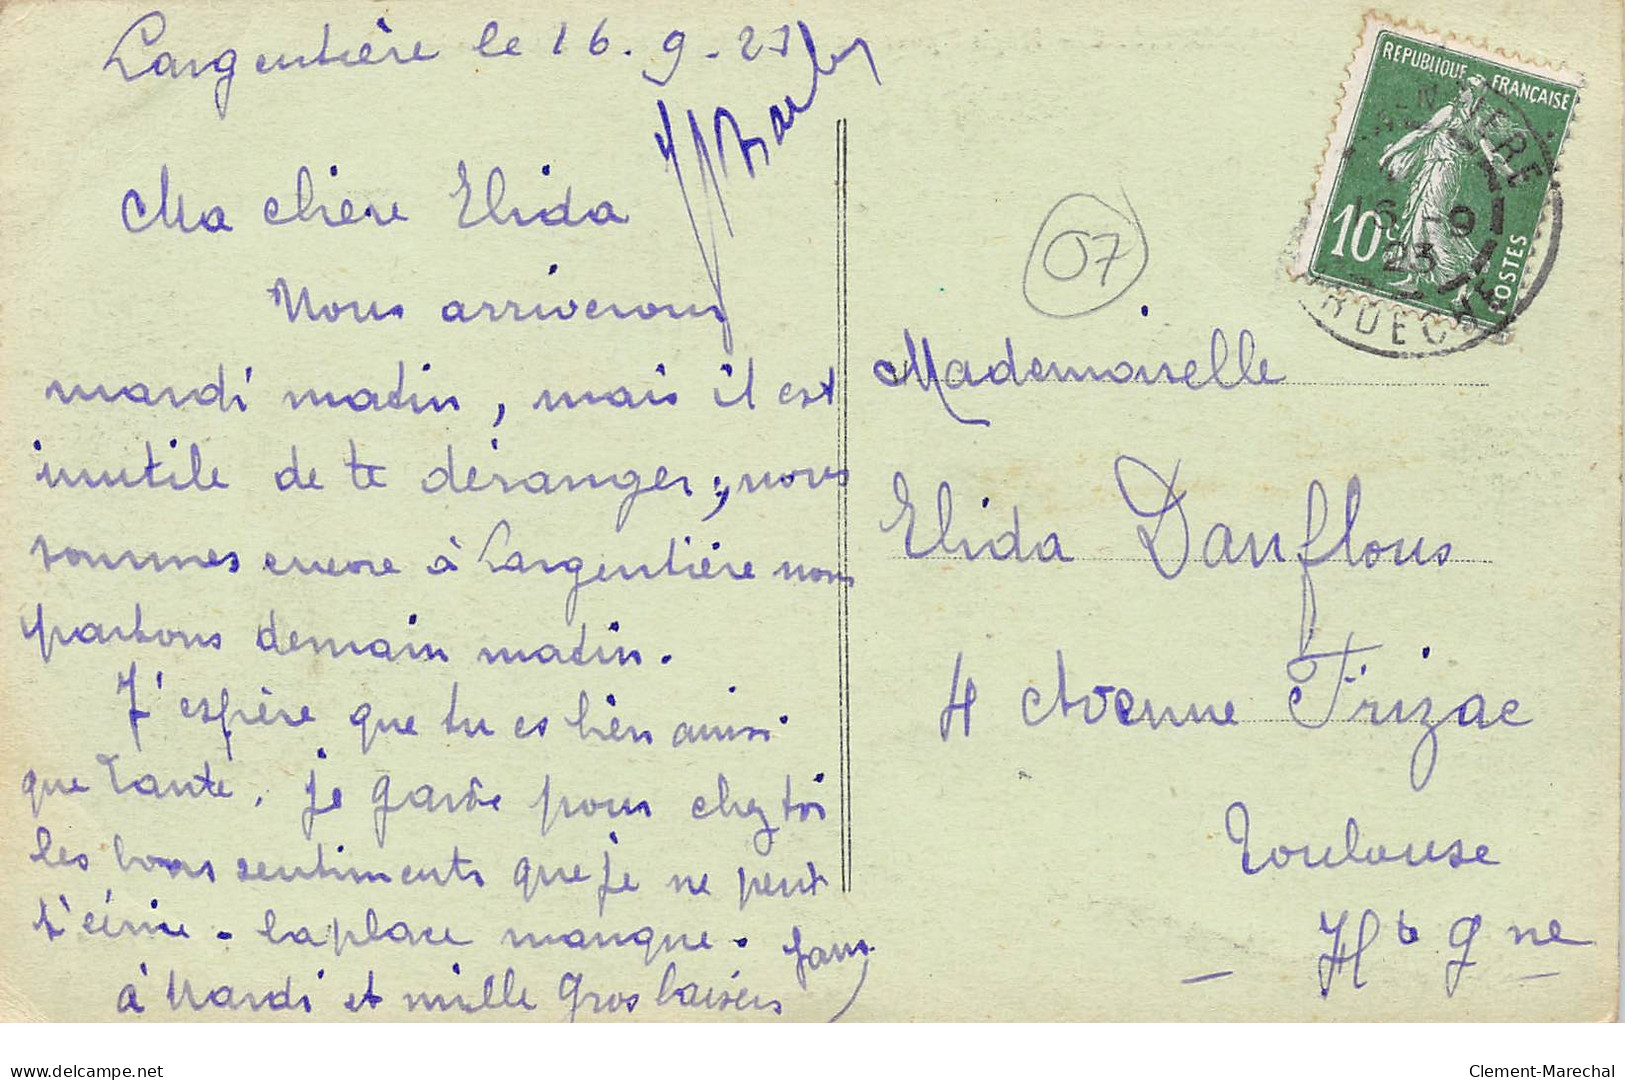 Largentière le 16.9-23
Ma chère Elida
Nous arriverons
mardi matin, mais il est
inutile de te déranger, nous
sommes encore à Largentière nous
partons demain matin.
J'espère que tu es bien ainsi
que Tante. je garde pour chez toi
les bons sentiments que je ne peut
t'écrire - la place manque -
à Mardi et mille gros baisers
07
REPUBLIQUE FRANÇAISE
10c
POSTES
16 -9
23
ARDECHE
Mademoiselle
Elida Danflous
4 Avenue Frizac
Toulouse
- Hte Gne
delcampe.net
Clement-Marechal